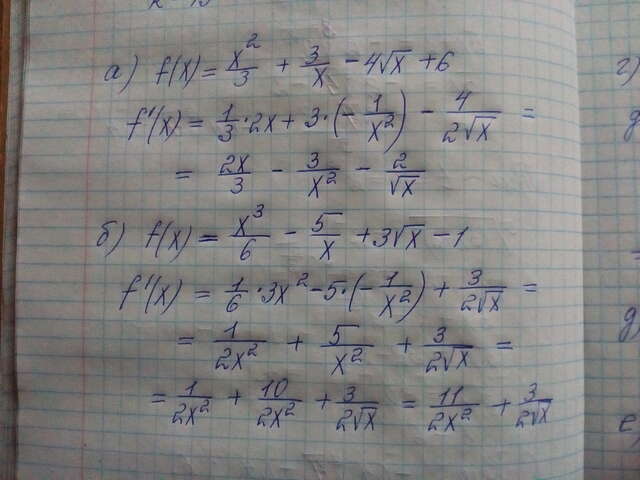 а) f(x) = x²/3 + 3/x − 4√x + 6
f'(x) = 1/3 · 2x + 3 · (− 1/x²) − 4/2√x =
= 2x/3 − 3/x² − 2/√x
б) f(x) = x³/6 − 5/x + 3√x − 1
f'(x) = 1/6 · 3x² − 5 · (− 1/x²) + 3/2√x =
= 1/2x² + 5/x² + 3/2√x =
= 1/2x² + 10/2x² + 3/2√x = 11/2x² + 3/2√x
г)
е